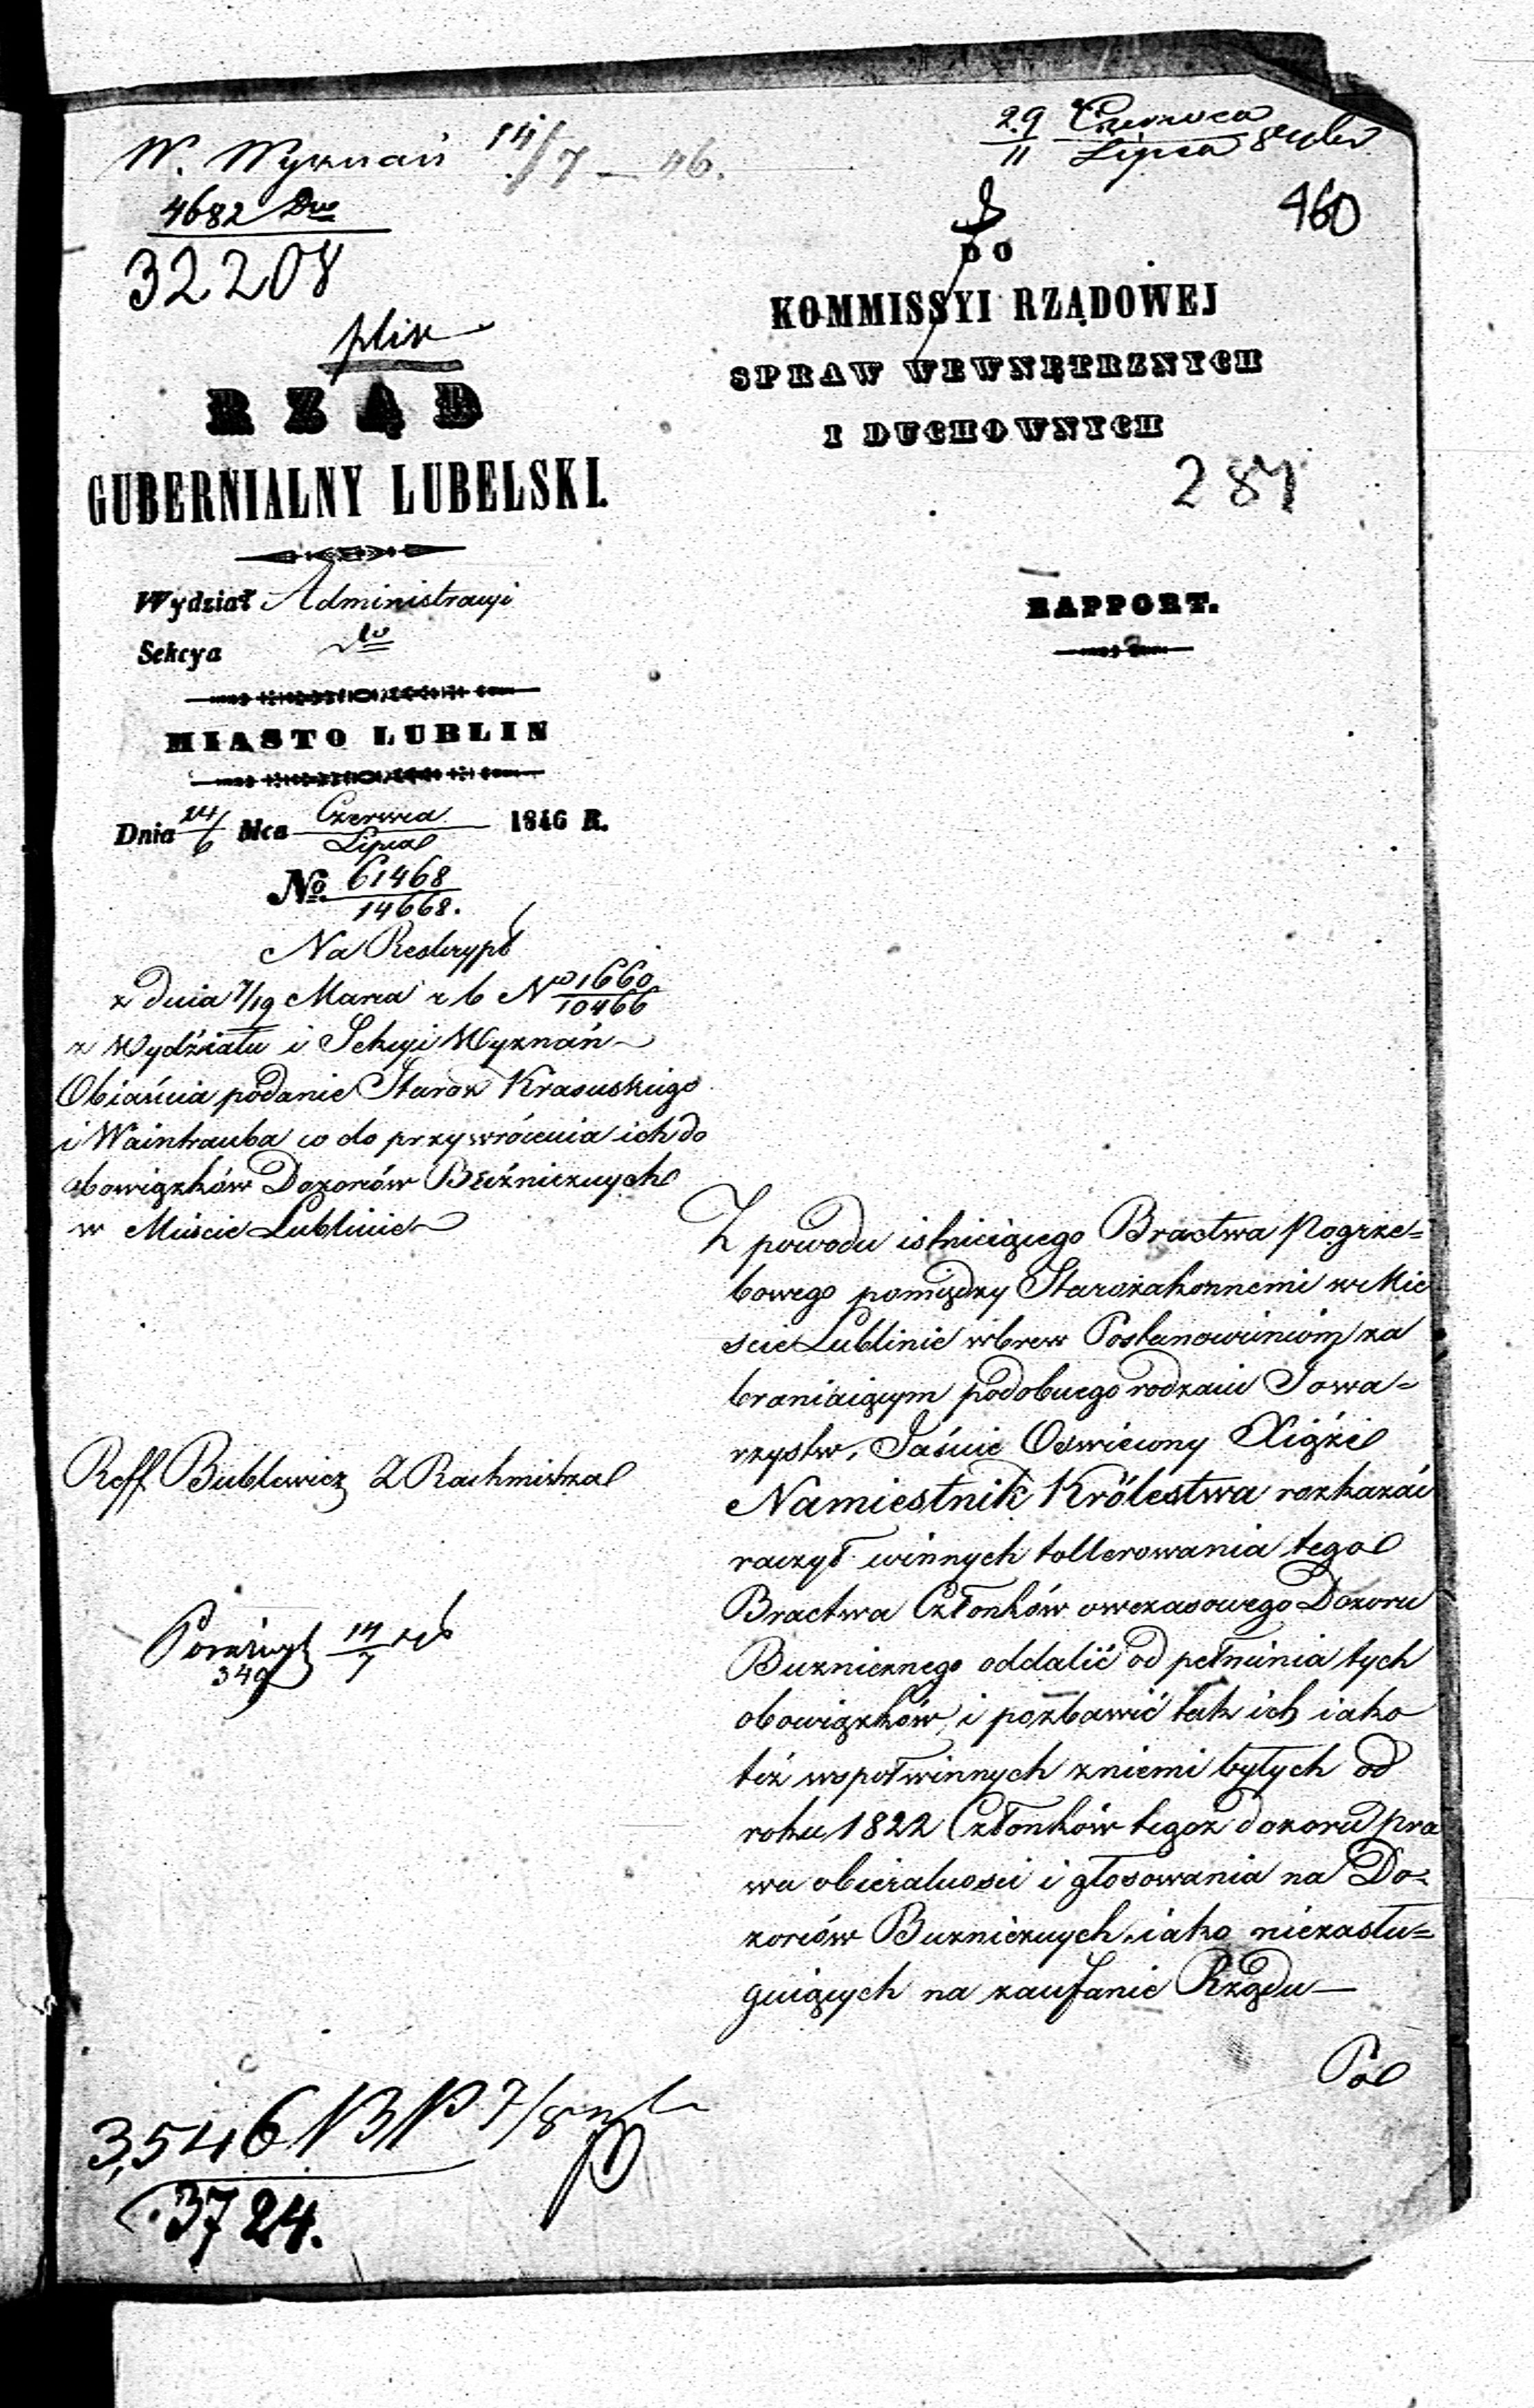 W. Wyznań 14/7 – 46.
4682
32208
plik
RZĄD
GUBERNIALNY LUBELSKI.
Wydział Administracyi
Sekcya
MIASTO LUBLIN
Dnia 24/6 Mca Czerwca/Lipca 1846 R.
No. 61468/14668.
Na Reskrypt
z dnia 7/19 Marca r b No 1660/10466
z Wydziału i Sekcyi Wyznań
Obiaśnia podanie Staroz Krasuskiego
i Waintrauba co do przywrócenia ich do
obowiązków Dozorców Bóźniczych
w Mieście Lublinie
Reff Bublewicz Z Rachmistrza
14/7
349
3,546 7/8
3724.
29/11 Czerwca/Lipca
460
DO
KOMMISSYI RZĄDOWEJ
SPRAW WEWNĘTRZNYCH
I DUCHOWNYCH
287
RAPPORT.
Z powodu istnieiącego Bractwa Pogrze=
bowego pomiędzy Starozakonnemi w Mie
scie Lublinie wbrew Postanowieniom za
braniaiącym podobnego rodzaiu Towa=
rzystw, Jaśnie Oswiecony Xiąże
Namiestnik Królestwa rozkazać
raczył winnych tollerowania tego
Bractwa Członków owczasowego Dozoru
Buznicznego oddalić od pełnienia tych
obowiązków, i pozbawić tak ich iako
też wspołwinnych zniemi byłych od
roku 1822 Członków tegoż dozoru pra
wa obieralności i głosowania na Do=
zorców Buzniczych, iako niezasłu=
guiących na zaufanie Rządu —
Po